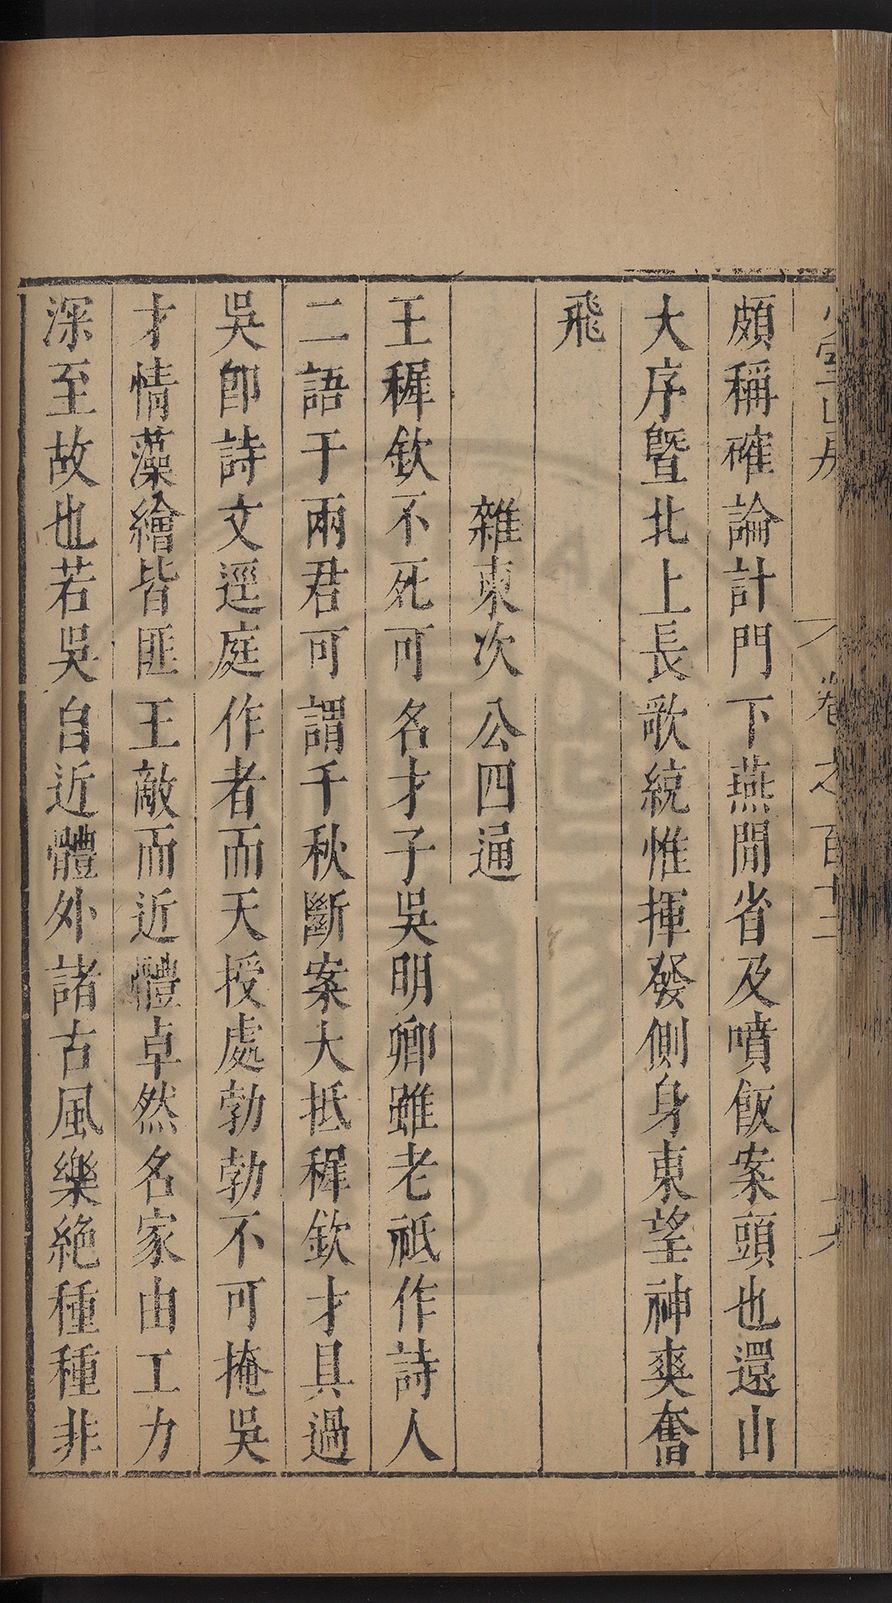 少室山房
卷之百十三
頗稱確論計門下燕閒省及噴飯案頭也還山
大序曁北上長歌統惟揮發側身東望神爽奮
飛
雜柬次公四通
王稺欽不死可名才子吳明卿雖老祗作詩人
二語于兩君可謂千秋斷案大抵稺欽才具過
吳卽詩文逕庭作者而天授處勃勃不可掩吳
才情藻繪皆匪王敵而近體卓然名家由工力
深至故也若吳自近體外諸古風樂絶種種非